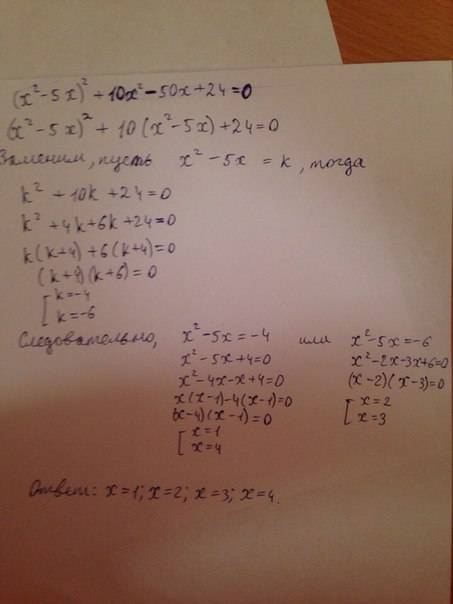 (x²-5x)²+10x²-50x+24=0
(x²-5x)²+10(x²-5x)+24=0
Заменим, пусть x²-5x=k, тогда
k²+10k+24=0
k²+4k+6k+24=0
k(k+4)+6(k+4)=0
(k+4)(k+6)=0
[k=-4
k=-6
Следовательно, x²-5x=-4 или x²-5x=-6
x²-5x+4=0 x²-2x-3x+6=0
x²-4x-x+4=0 (x-2)(x-3)=0
x(x-1)-4(x-1)=0 [x=2
(x-4)(x-1)=0 x=3
[x=1
x=4
Ответ: x=1; x=2; x=3; x=4.